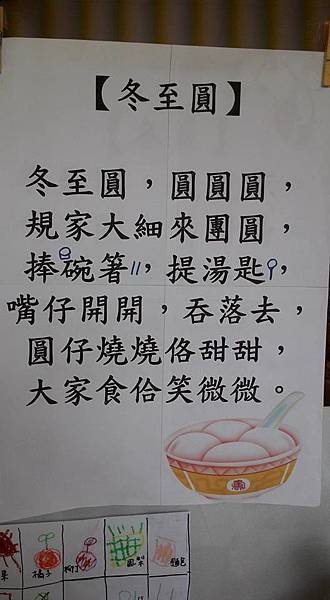 【冬至圓】
冬至圓，圓圓圓，
規家大細來團圓，
捧碗箸，提湯匙，
嘴仔開開，吞落去，
圓仔燒燒佫甜甜，
大家食佮笑微微。
橘子
柳丁
鳳梨
麵包